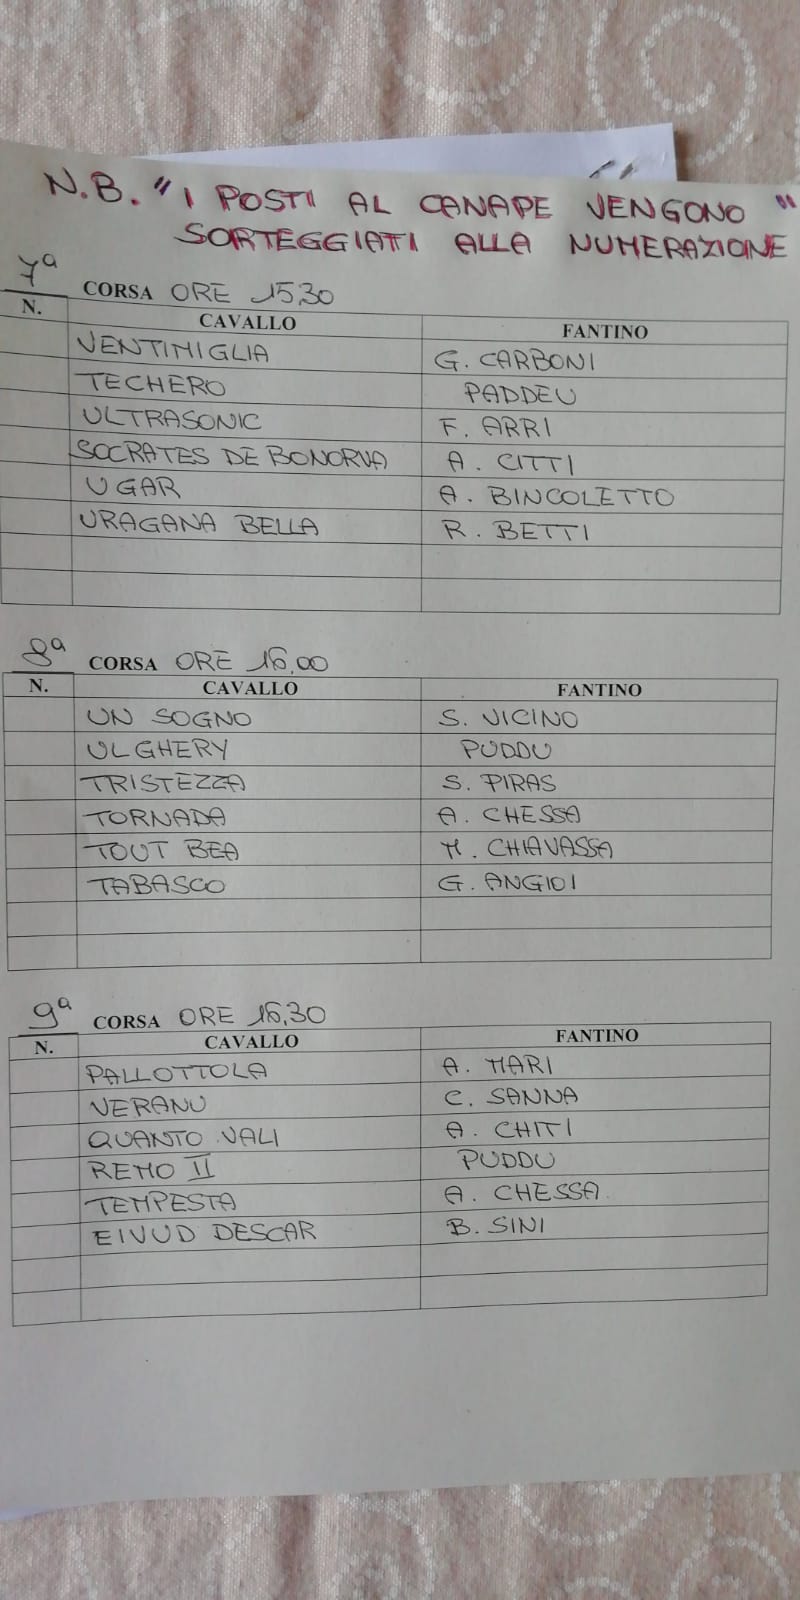 N.B. "I POSTI AL CANAPE VENGONO "
SORTEGGIATI ALLA NUMERAZIONE
7ª CORSA ORE 15,30
N. CAVALLO FANTINO
VENTIMIGLIA G. CARBONI
TECHERO PADDEU
ULTRASONIC F. ARRI
SOCRATES DE BONORVA A. CITTI
UGAR A. BINCOLETTO
URAGANA BELLA R. BETTI
8ª CORSA ORE 16,00
N. CAVALLO FANTINO
UN SOGNO S. VICINO
ULGHERY PUDDU
TRISTEZZA S. PIRAS
TORNADA A. CHESSA
TOUT BEA M. CHIAVASSA
TABASCO G. ANGIOI
9ª CORSA ORE 16,30
N. CAVALLO FANTINO
PALLOTTOLA A. MARI
VERANU C. SANNA
QUANTO VALI A. CHITI
REMO II PUDDU
TEMPESTA A. CHESSA
EIVUD DESCAR B. SINI